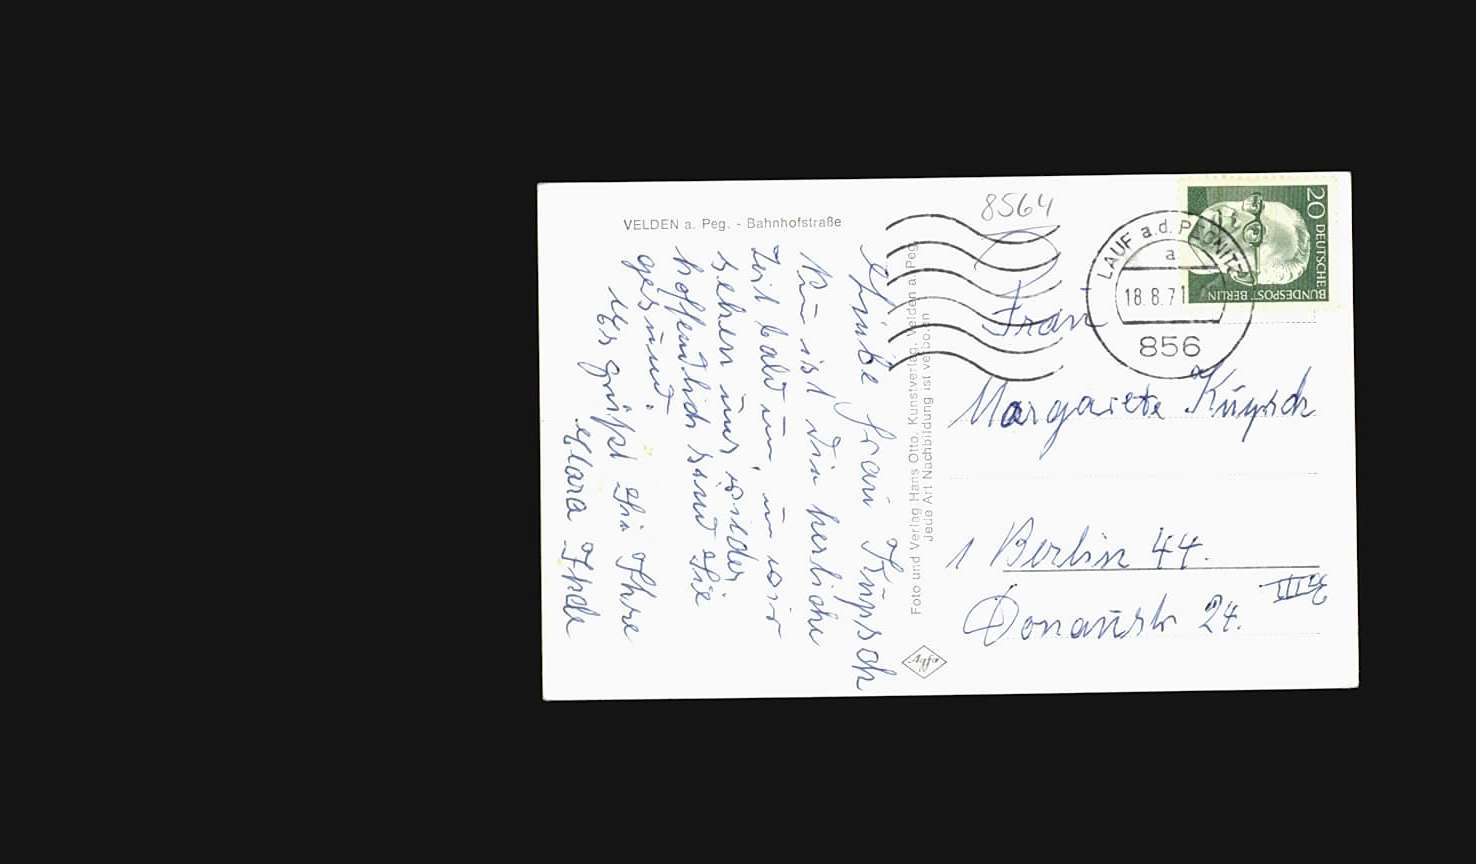 VELDEN a. Peg. - Bahnhofstraße
Liebe Frau Küpsch
Nun ist die herliche
Zeit bald um, u wir
sehen uns wieder
hoffendlich sind Sie
gesund.
Es grüßt Sie Ihre
Klara
Foto und Verlag Hans Otto, Kunstverlag, Velden a. Peg.
Jede Art Nachbildung ist verboten
Agfa
8564
20 DEUTSCHE
BUNDESPOST BERLIN
LAUF a.d. PEGNITZ
a
18.8.71
856
Frau
Margarete Küpsch
1 Berlin 44.
Donaustr 24.